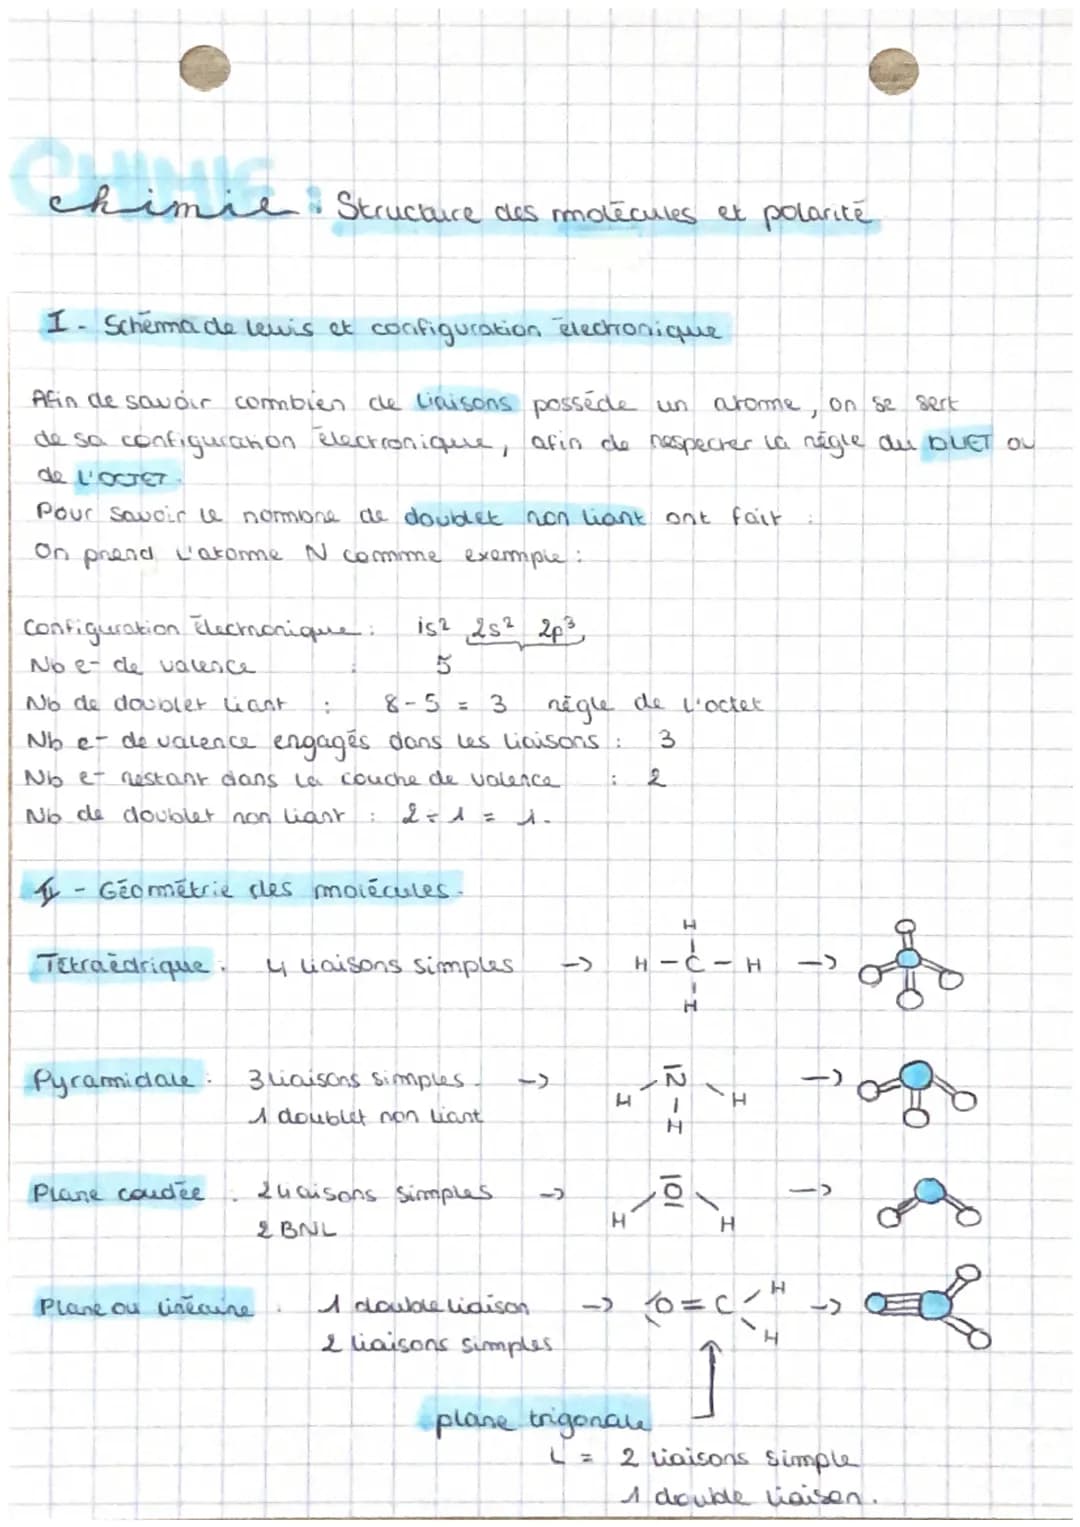 CHIMIE
chimie : Structure des molécules et polarité
I - Schéma de lewis et configuration électronique
Afin de savoir combien de liaisons posséde un atome, on se sert
de sa configuration électronique, afin de respecter la régle du DUET ou
de L'OCTET.
Pour savoir le nombre de doublet non liant ont fait :
On prend l'atome N comme exemple :
Configuration électronique : 1s² 2s² 2p³
Nb e- de valence : 5
Nb de doublet liant : 8-5 = 3 régle de l'octet
Nb e- de valence engagés dans les liaisons : 3
Nb e- restant dans la couche de valence : 2
Nb de doublet non liant : 2 ÷ 1 = 1.
II - Géométrie des molécules.
Tétraèdrique : 4 liaisons simples -> H - C - H ->
H
H
Pyramidale : 3 liaisons simples. -> N ->
1 doublet non liant H H
H
Plane coudée : 2 liaisons simples -> O ->
2 BNL H H
Plane ou linéaire : 1 double liaison -> O = C H ->
2 liaisons simples H
plane trigonale
L = 2 liaisons simple
1 double liaison.